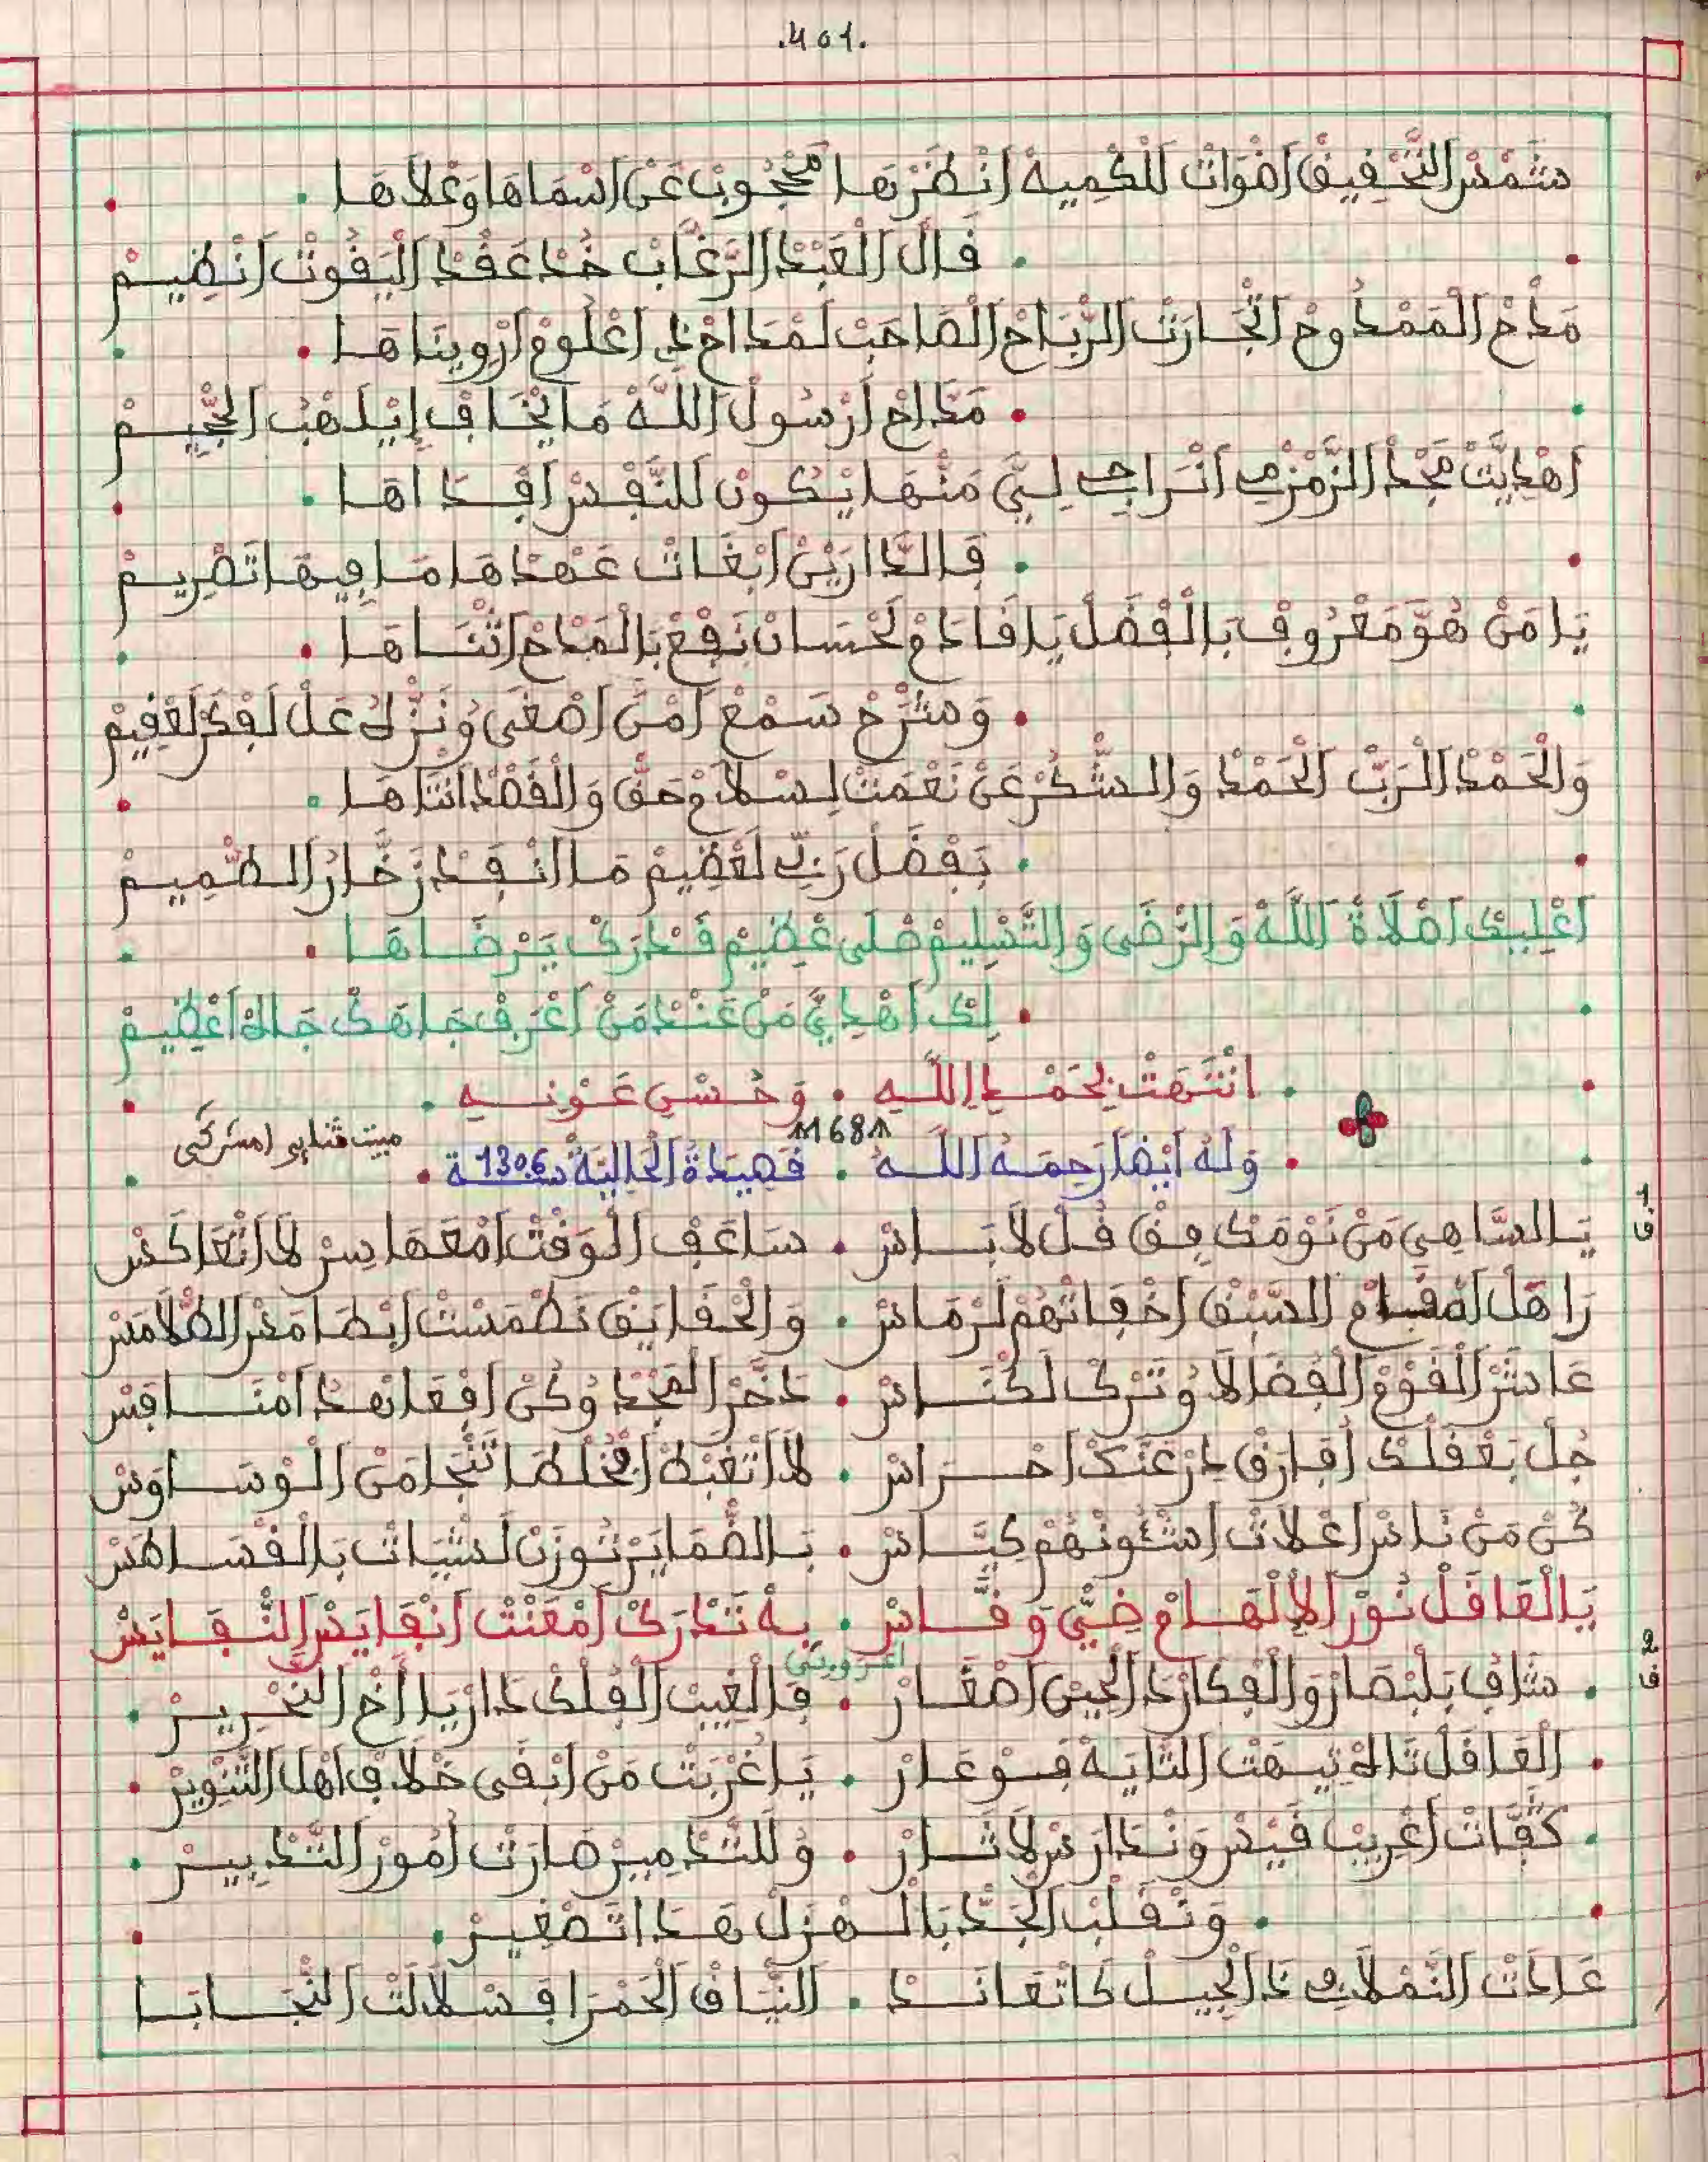 .401.
شَمْسْ التَّحْقِيقْ اضْوَاتْ لَلْكْمِيهْ انْظَرْهَا مَحْجُوبْ عَنْ اسْمَاهَا وَعْلاَهَا
قَالْ الْعَبْدْ الرَّغَّابْ خُدْ عَقْدْ الْيَقُوتْ انْظِيمْ
مَدْحْ الْمَمْدُوحْ اتْجَارَتْ الرّْبَاحْ الصَاحَبْ لَمْدَاحْ دِ اعْلُومْ ارْوِينَاهَا
مَدَّاحْ ارْسُولْ اللَّهْ مَا يْخَافْ إِيْلَهْبْ الجّْحِيمْ
اهْدِيَّتْ مَجْدْ الزَّمْزْمِي اتْرَاجِي لِيَّ مَنّْهَا يْكُونْ للنَّفْسْ افْدَاهَا
فَالدَّارِينْ ابْغَاتْ عَهْدْهَا مَا فِيهَا تَصْرِيمْ
يَا مَنْ هُوَّ مَعْرُوفْ بَالْفْضَلْ يَا قَادَمْ لَحْسَانْ نَفِعْ بَالْمَدْحْ اتْنَاهَا
وَشْرَحْ سَمْعْ امْنْ اصْغَى وُنَزّْلُ عَلْ لَفْكَرْ لَعْقِيمْ
وَالْحَمْدْ الْرَبّْ الْحَمْدْ وَالشُّكْرْ عَنْ نَعْمَتْ لِسْلاَمْ حَقّْ وَالْقَصْدْ انْتَاهَا
بَفْضَلْ رَبِّي لَعْظِيمْ مَا انْفَدْ زَخَّارْ الطّْمِيمْ
اعْلِيكْ اصْلاَةْ اللَّهْ وَالرّْضَى وَالتَّسْلِيمْ صْلَى عْظِيمْ قَدْرَكْ يَرْضَاهَا
لِكْ اهْدِيَّ مَنْ عَنْدْ مَنْ اعْرَفْ جَاهَكْ جَاهْ اعْظِيمْ
انْتَهَتْ بِحَمْدِ اللَّهِ . وَحُسْنِ عَوْنِهِ
168
وَلَهُ أَيْضاً رَحِمَهُ اللَّهُ . قَصِيدَةُ الْحَالِيَةُ سنة 1306
مبيت ثنايي امشركي
ق 1
يَا السَّاهِي مَنْ نَوْمَكْ فِقْ قُلْ لاَ بَاسْ . سَاعَفْ الْوَقْتْ امْعَهَا سِرْ لاَ اتْعَاكَسْ
رَا هْلْ امْقَامْ السّْبَقْ اخْفَاتْهُمْ لَرْمَاسْ . وَالْحْقَايَقْ نَطْمَسْتْ ابْطَامَسْ الطْلاَمَسْ
عَاشَرْ الْقَوْمْ الْفْضَالاَ وُتَرْكْ لَكْنَاسْ . دَخَّرْ الْمَجْدْ وُكُنْ افْعَاهْدْ امْنَافَسْ
جُلْ بَعْقْلَكْ افَارَقْ دِرْ عَنَّكْ احْرَاسْ . لاَ اتْغَبَّطْ المُخْلَطَا تَنْجَا مَنْ الْوْسَاوَسْ
كُنْ مَنْ نَاسْ اعْلاَتْ اشْئُونْهُمْ كِيَّاسْ . بَالضّْمَايَرْ تُوزَنْ لَشْيَاتْ بَالْقْسَاهَسْ
يَا الْغَافَلْ نُورْ الإِلْهَامْ ضِيُّ وَقَّاسْ . بِهْ تَدْرَكْ امْعَنْتْ انْفَايَسْ النّْفَايَسْ
اعروبي
ق 2
شَافْ بَلْبْصَارْ وَالْفْكَارْ دَ الْجِينْ اصْغَارْ . فَالْغِيبْ الْفْلَكْ دَارْ يَا أَخْ التَّحْرِيرْ
الْغَافَلْ تَاهْ تِيهَتْ التَّايَهْ فَوْعَارْ . يَا غُرْبَتْ مَنْ ابْقَى خْلاَفْ اهْلْ التَّنْوِيرْ
كَفَّاتْ اغْرِيبْ فَيْسْ وَنْدَارَسْ لاَثَارْ . وُللتَّدْمِيرْ صَارَتْ امُورْ التَّدْبِيرْ
وَنْقَلْبْ الْجَدّْ بَالْهْزَلْ هَدَا تَصْغِيرْ
عَادَتْ النَّمْلاَ فِي دَ الْجِيلْ كَاتْعَانَدْ . النّْيَاقْ الْحَمْرَا فَسْلاَلَتْ النّْجَابَا